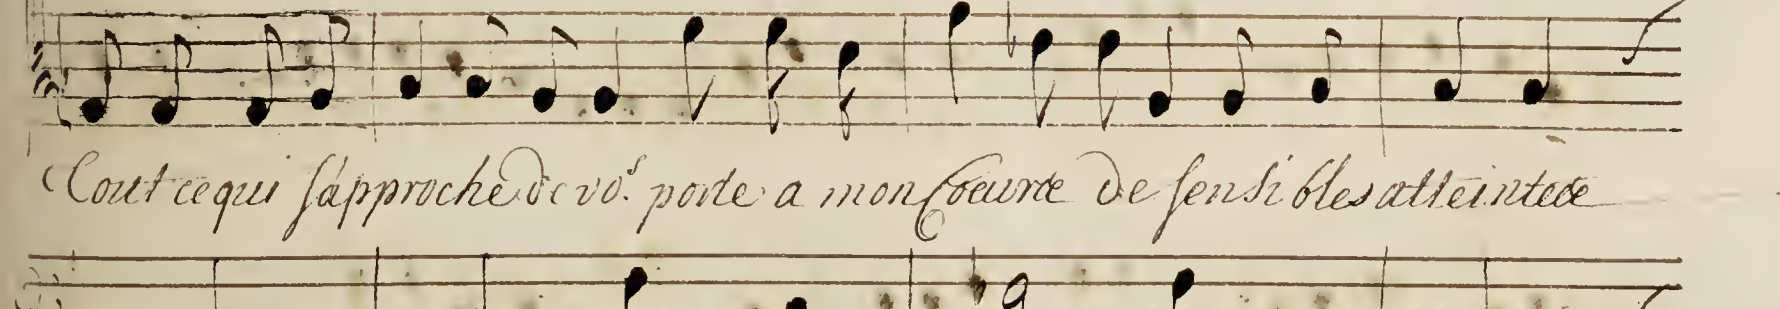 Tout ce qui s'approche de vo.s porte a mon Coeur de sensibles atteinte